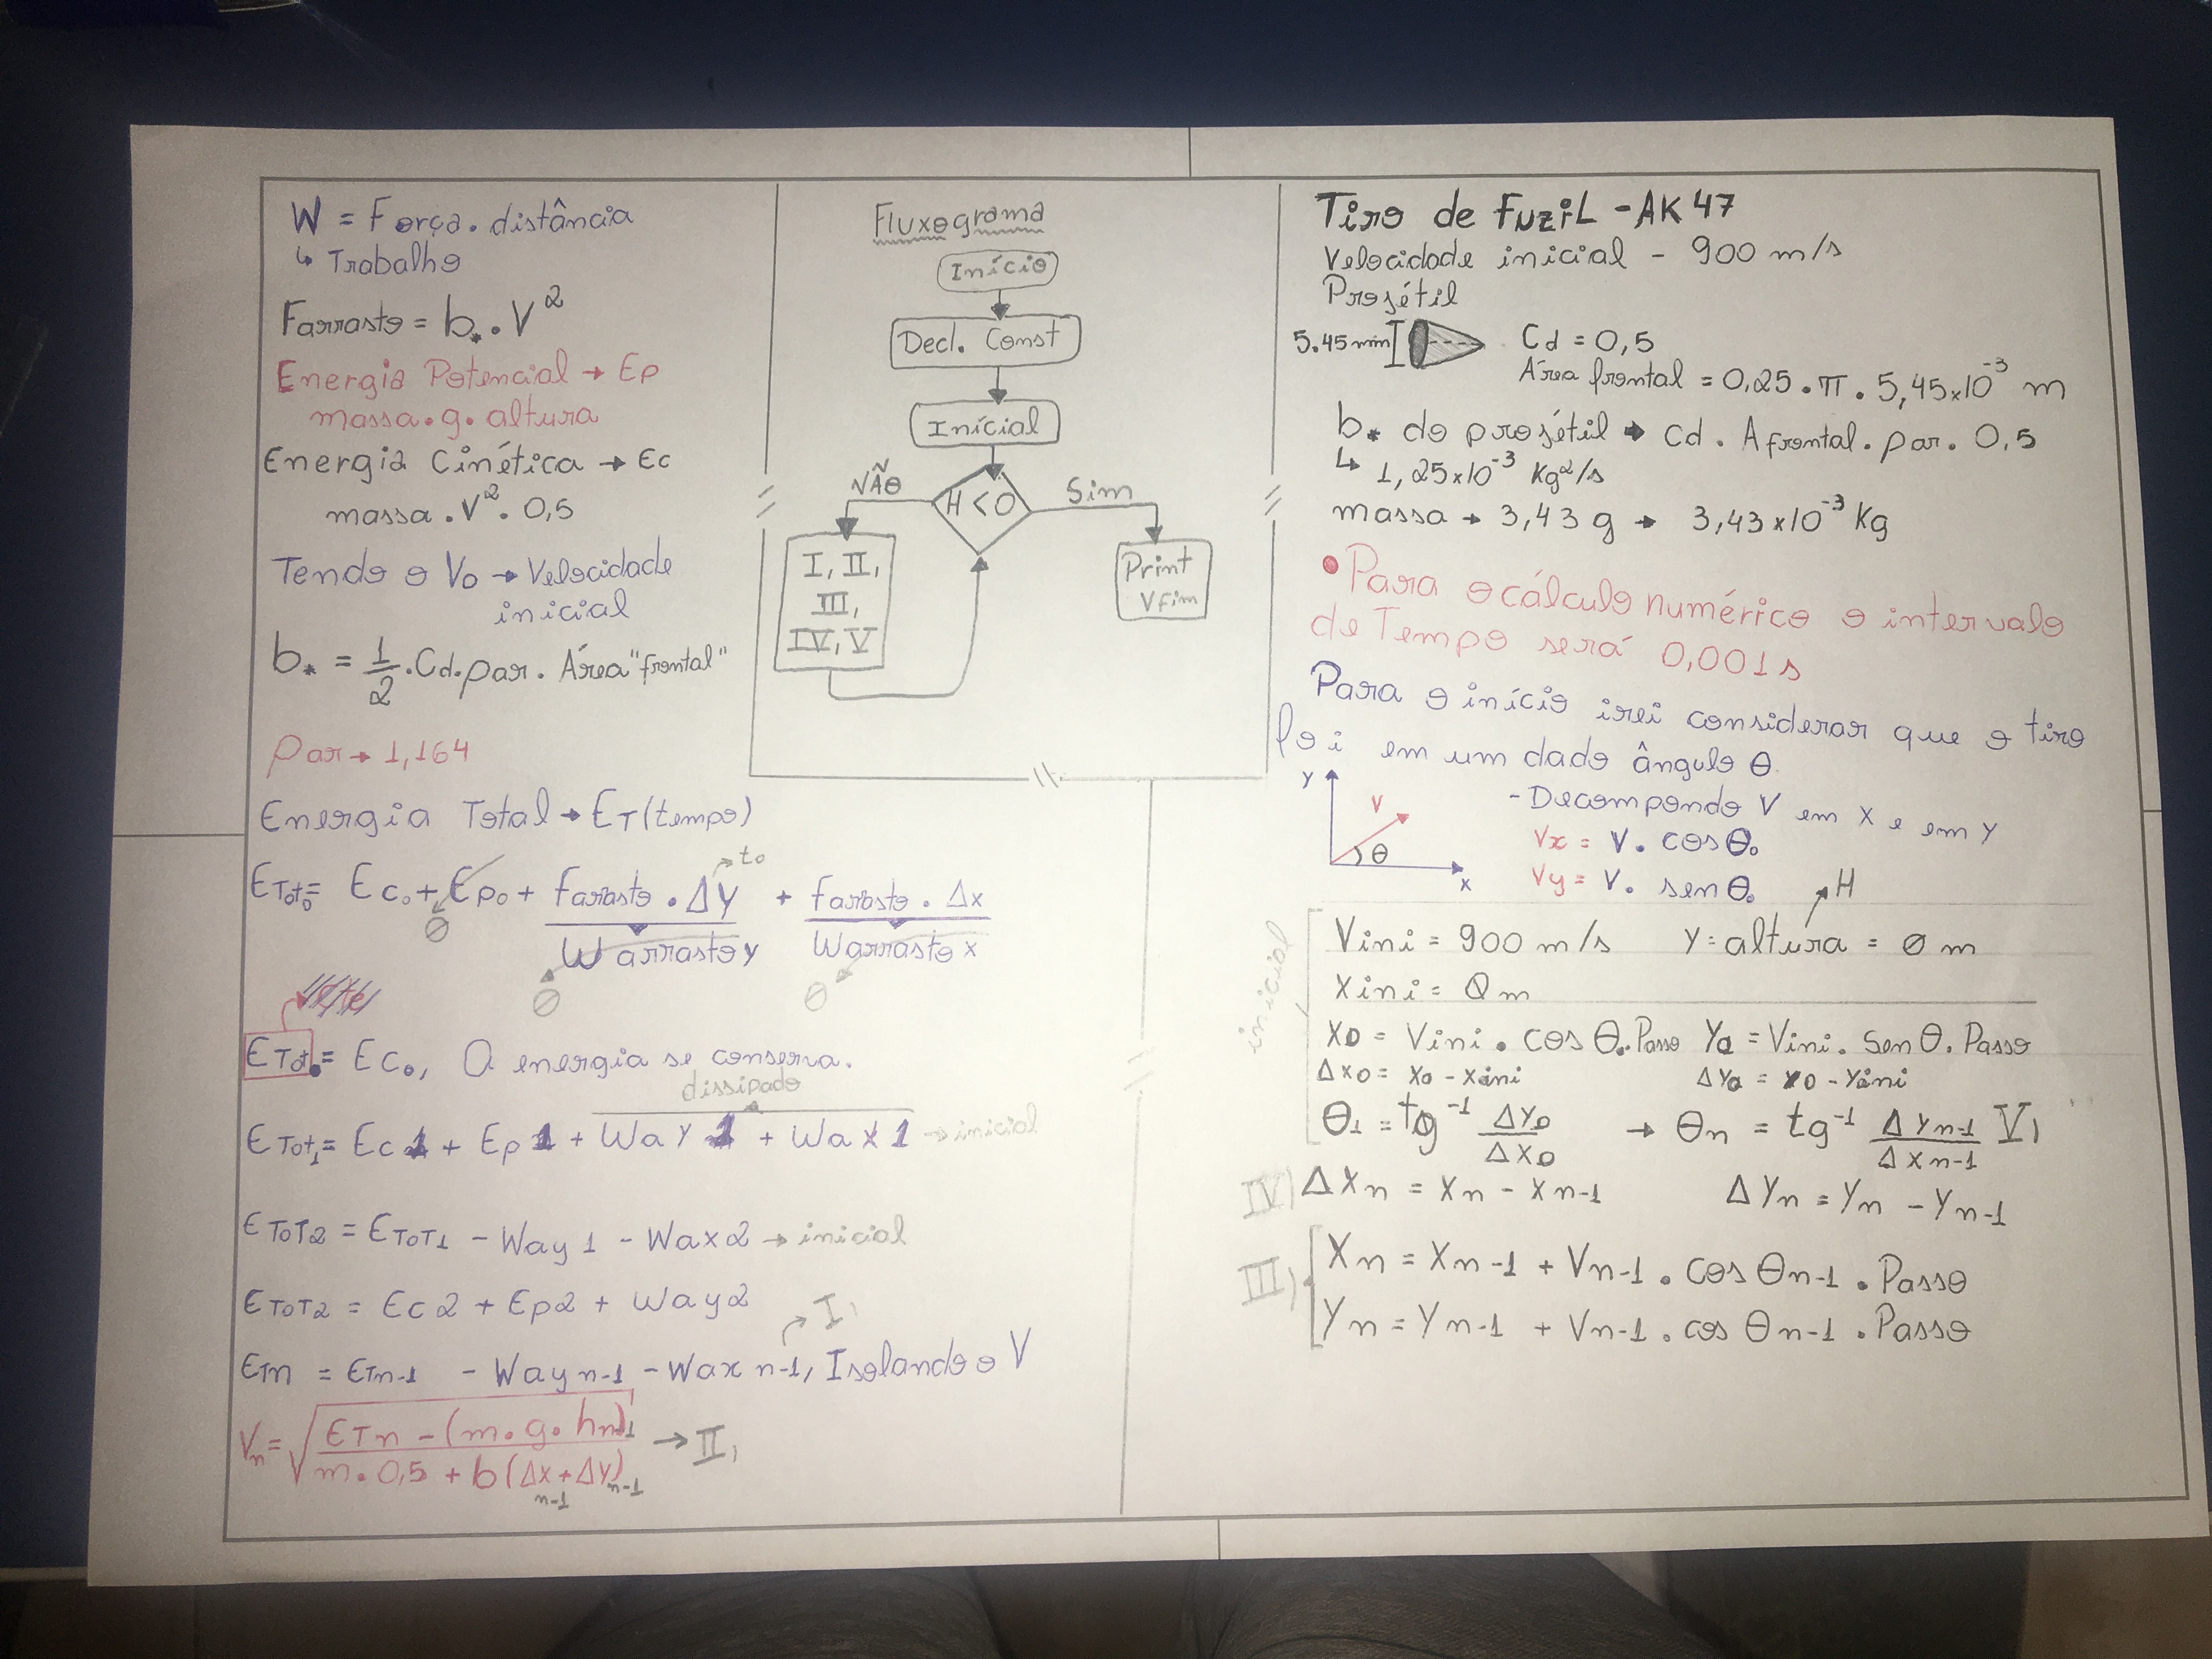 W = Força . distância
↳ Trabalho
Farrasto = b* . V²
Energia Potencial → Ep
massa . g . altura
Energia Cinética → Ec
massa . V² . 0,5
Tendo o Vo → Velocidade
inicial
b* = 1/2 . Cd . ρar . Área "frontal"
ρar → 1,164
Energia Total → ET(tempo)
→ to
ETot₀ = Ec₀ + Ep₀ + farrasto . Δy + farrasto . Δx
Ø
Warrasto y Warrasto x
Ø Ø
ETot₀ = Ec₀, A energia se conserva.
dissipado
ETot₁ = Ec1 + Ep1 + Way1 + Wax1 → inicial
ETOT2 = ETOT1 - Way1 - Wax2 → inicial
ETOT2 = Ec2 + Ep2 + Way2
→ I)
ETn = ETn-1 - Way n-1 - Wax n-1, Isolando o V
Vn = √ ETn - (m . g . hn)-1 / m . 0,5 + b (Δx + Δy) n-1 n-1 → II)
Fluxograma
Início
Decl. Const
Inícial
NÃO H<0 Sim
I, II,
III,
IV, V
Print
Vfim
Tiro de fuziL - AK 47
Velocidade inicial - 900 m/s
Projétil
5.45 mm Cd = 0,5
Área frontal = 0,25 . π . 5,45x10⁻³ m
b* do projétil → Cd . Afrontal . ρar . 0,5
↳ 1,25x10⁻³ Kg²/s
massa → 3,43 g → 3,43x10⁻³ Kg
• Para o cálculo numérico o intervalo
de Tempo será 0,001s
Para o início irei considerar que o tiro
foi em um dado ângulo θ.
y
V
θ
x
- Decompondo V em X e em Y
Vx = V . cos θ.
Vy = V . sen θ.
→ H
inicial
Vini = 900 m/s Y = altura = Ø m
Xini = 0 m
X0 = Vini . cos θ . Passo Y0 = Vini . Sen θ . Passo
Δx0 = X0 - Xini ΔY0 = Y0 - Yini
θ1 = tg⁻¹ ΔY0/ΔX0 → θn = tg⁻¹ ΔYn-1/ΔXn-1 V)
IV) ΔXn = Xn - Xn-1 ΔYn = Yn - Yn-1
III) Xn = Xn-1 + Vn-1 . cos θn-1 . Passo
Yn = Yn-1 + Vn-1 . cos θn-1 . Passo